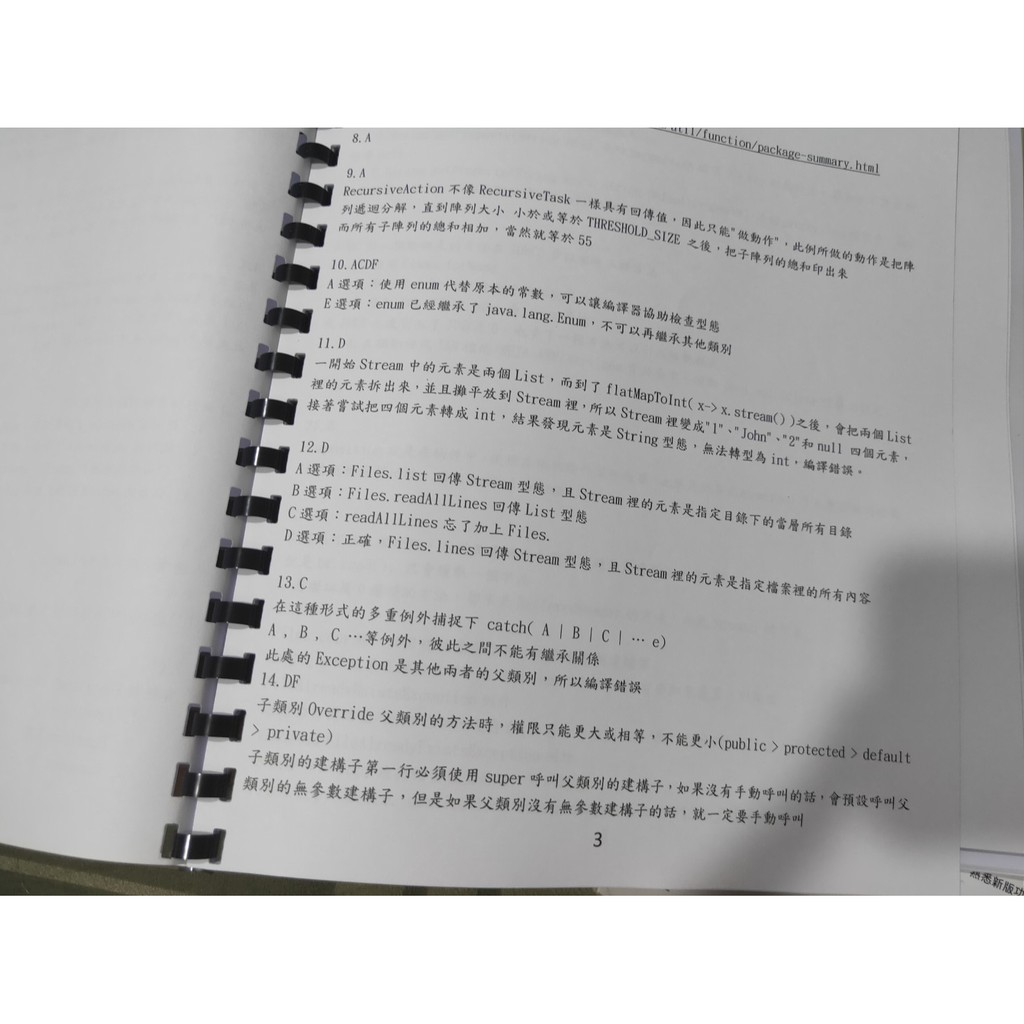 util/function/package-summary.html
8.A
9.A
RecursiveAction 不像 RecursiveTask 一樣具有回傳值，因此只能"做動作"，此例所做的動作是把陣
列遞迴分解，直到陣列大小 小於或等於 THRESHOLD_SIZE 之後，把子陣列的總和印出來
而所有子陣列的總和相加，當然就等於 55
10.ACDF
A 選項：使用 enum 代替原本的常數，可以讓編譯器協助檢查型態
E 選項：enum 已經繼承了 java.lang.Enum，不可以再繼承其他類別
11.D
一開始 Stream 中的元素是兩個 List，而到了 flatMapToInt( x-> x.stream() )之後，會把兩個 List
裡的元素拆出來，並且攤平放到 Stream 裡，所以 Stream 裡變成"1"、"John"、"2"和 null 四個元素，
接著嘗試把四個元素轉成 int，結果發現元素是 String 型態，無法轉型為 int，編譯錯誤。
12.D
A 選項：Files.list 回傳 Stream 型態，且 Stream 裡的元素是指定目錄下的當層所有目錄
B 選項：Files.readAllLines 回傳 List 型態
C 選項：readAllLines 忘了加上 Files.
D 選項：正確，Files.lines 回傳 Stream 型態，且 Stream 裡的元素是指定檔案裡的所有內容
13.C
在這種形式的多重例外捕捉下 catch( A | B | C | … e)
A , B , C …等例外，彼此之間不能有繼承關係
此處的 Exception 是其他兩者的父類別，所以編譯錯誤
14.DF
子類別 Override 父類別的方法時，權限只能更大或相等，不能更小(public > protected > default
> private)
子類別的建構子第一行必須使用 super 呼叫父類別的建構子，如果沒有手動呼叫的話，會預設呼叫父
類別的無參數建構子，但是如果父類別沒有無參數建構子的話，就一定要手動呼叫
3
悉新版功